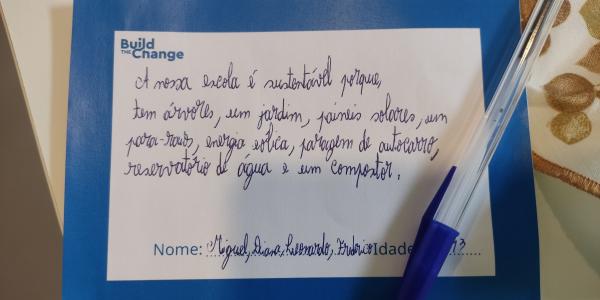 Build
THE Change
A nossa escola é sustentável porque,
tem árvores, um jardim, painéis solares, um
para-raios, energia eólica, paragem de autocarro,
reservatório de água e um compostor.
Nome: Miguel, Diana, Leonardo, Idade 13